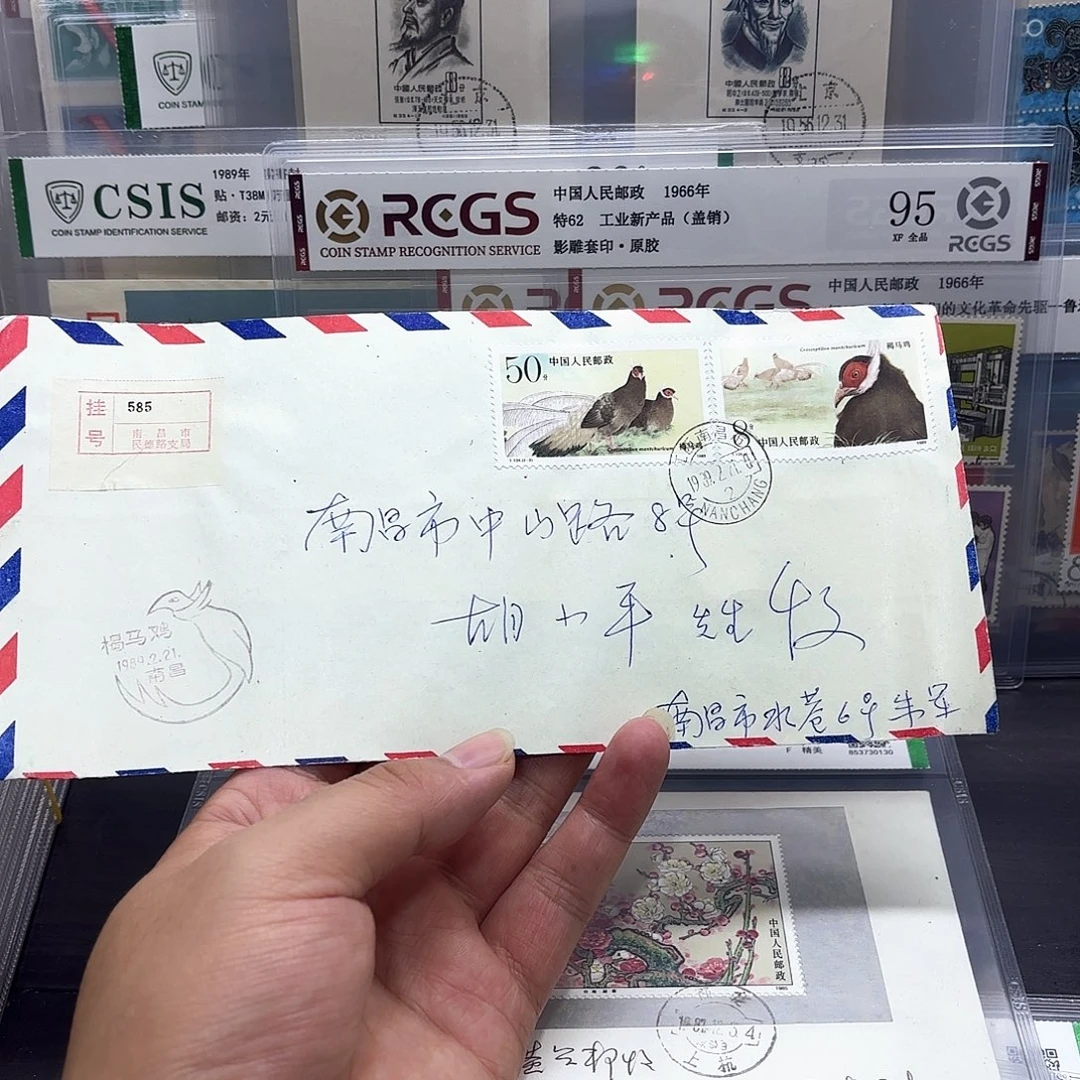 中国人民邮政
中国人民邮政
1956.12.31
1956.12.31
COIN STAM
CSIS
COIN STAMP IDENTIFICATION SERVICE
1989年
贴·T38M
邮资:2元
RCGS
COIN STAMP RECOGNITION SERVICE
中国人民邮政 1966年
特62 工业新产品(盖销)
影雕套印·原胶
95
XF 全品
RCGS
RCGS
中国人民邮政 1966年
的文化革命先驱--鲁
挂号
585
南昌市
民德路支局
50分
中国人民邮政
褐马鸡
Crossoptilon mantchuricum
褐马鸡
8分
中国人民邮政
NANCHANG
南昌市中山路8号
胡小平 先生 收
褐马鸡
1989.2.21.
南昌
南昌市水巷6号 朱军
F 精美
853730130
中国人民邮政
1985